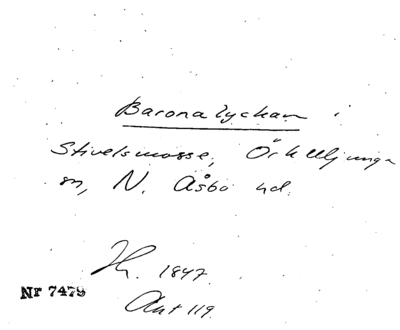 Baronalyckan i
Stivelsmosse, Örkelljunga
sn, N. Åsbo hd.
1847.
Nr 7479
Akt 119.